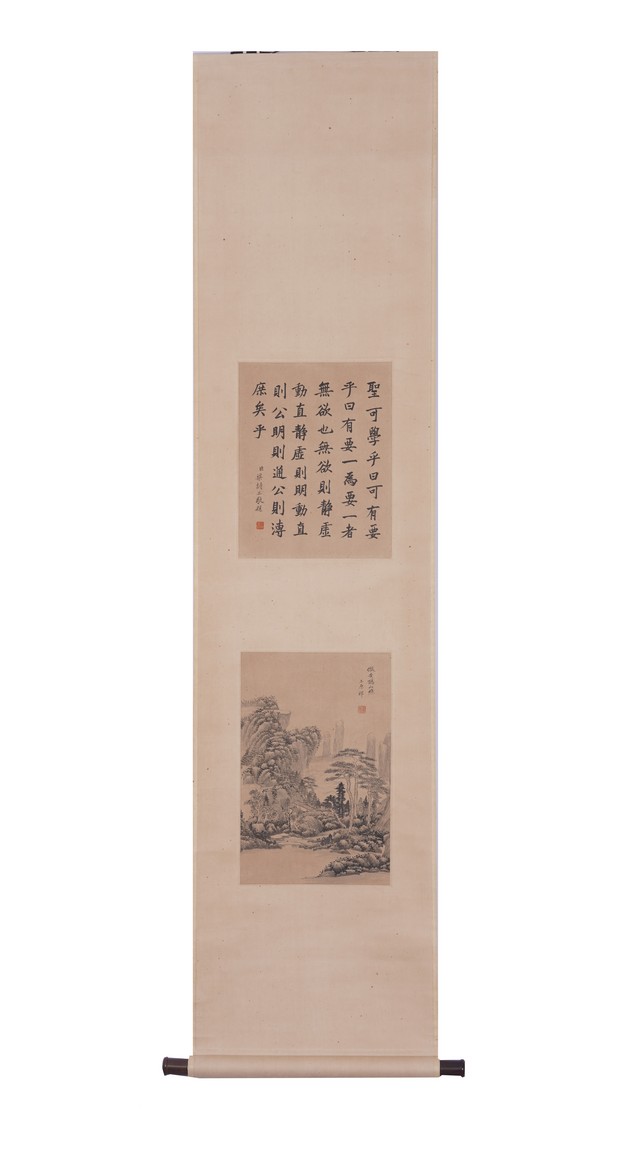 聖可學乎曰可有要
乎曰有要一為要一者
無欲也無欲則静虛
動直静虛則明動直
則公明則通公則溥
庶矣乎